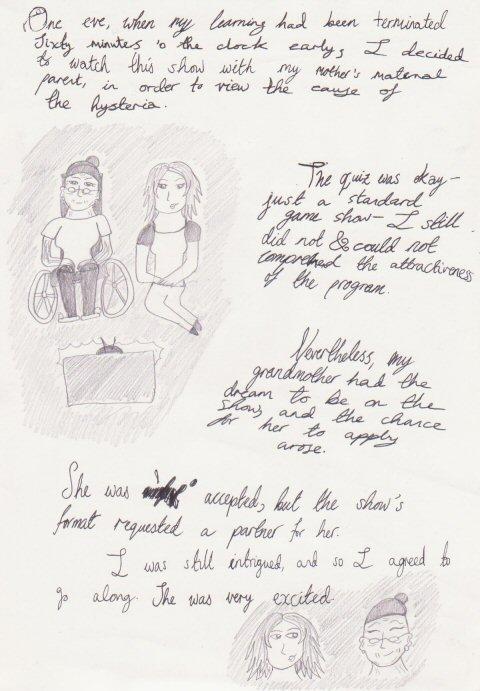 One eve, when my learning had been terminated
sixty minutes 'o the clock early, I decided
to watch this show with my mother's maternal
parent, in order to view the cause of
the hysteria.
The quiz was okay-
just a standard
game show- I still
did not & could not
comprehend the attractiveness
of the program.
Nevertheless, my
grandmother had the
dream to be on the
show, and the chance
for her to apply
arose.
She was accepted, but the show's
format requested a partner for her.
I was still intrigued, and so I agreed to
go along. She was very excited.